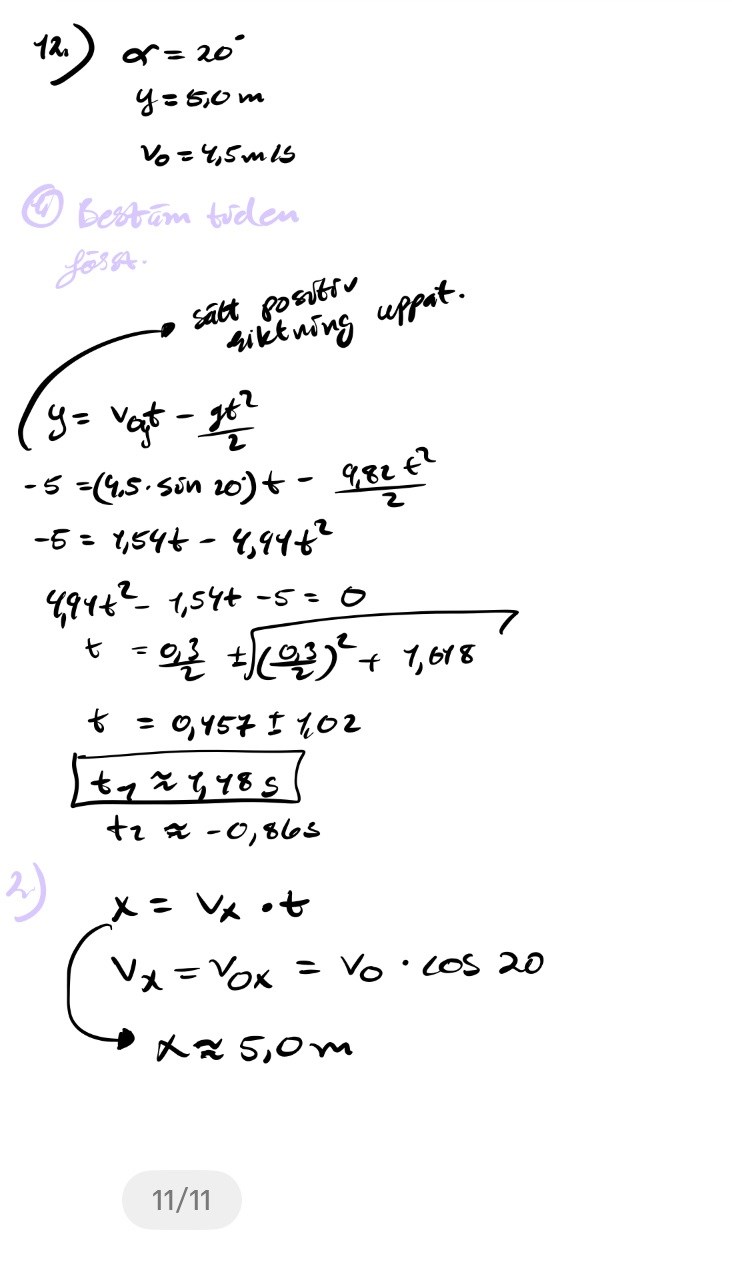 12.) α = 20°
y = 5,0 m
v₀ = 4,5 m/s
① Bestäm tiden
först.
sätt positiv
riktning uppåt.
y = v₀yt - gt²/2
-5 = (4,5 · sin 20°)t - 9,82t²/2
-5 = 1,54t - 4,91t²
4,91t² - 1,54t - 5 = 0
t = 0,3/2 ± √(0,3/2)² + 1,018
t = 0,457 ± 1,02
t₁ ≈ 1,18 s
t₂ ≈ -0,86s
2)
x = vₓ · t
vₓ = v₀ₓ = v₀ · cos 20
x ≈ 5,0 m
11/11